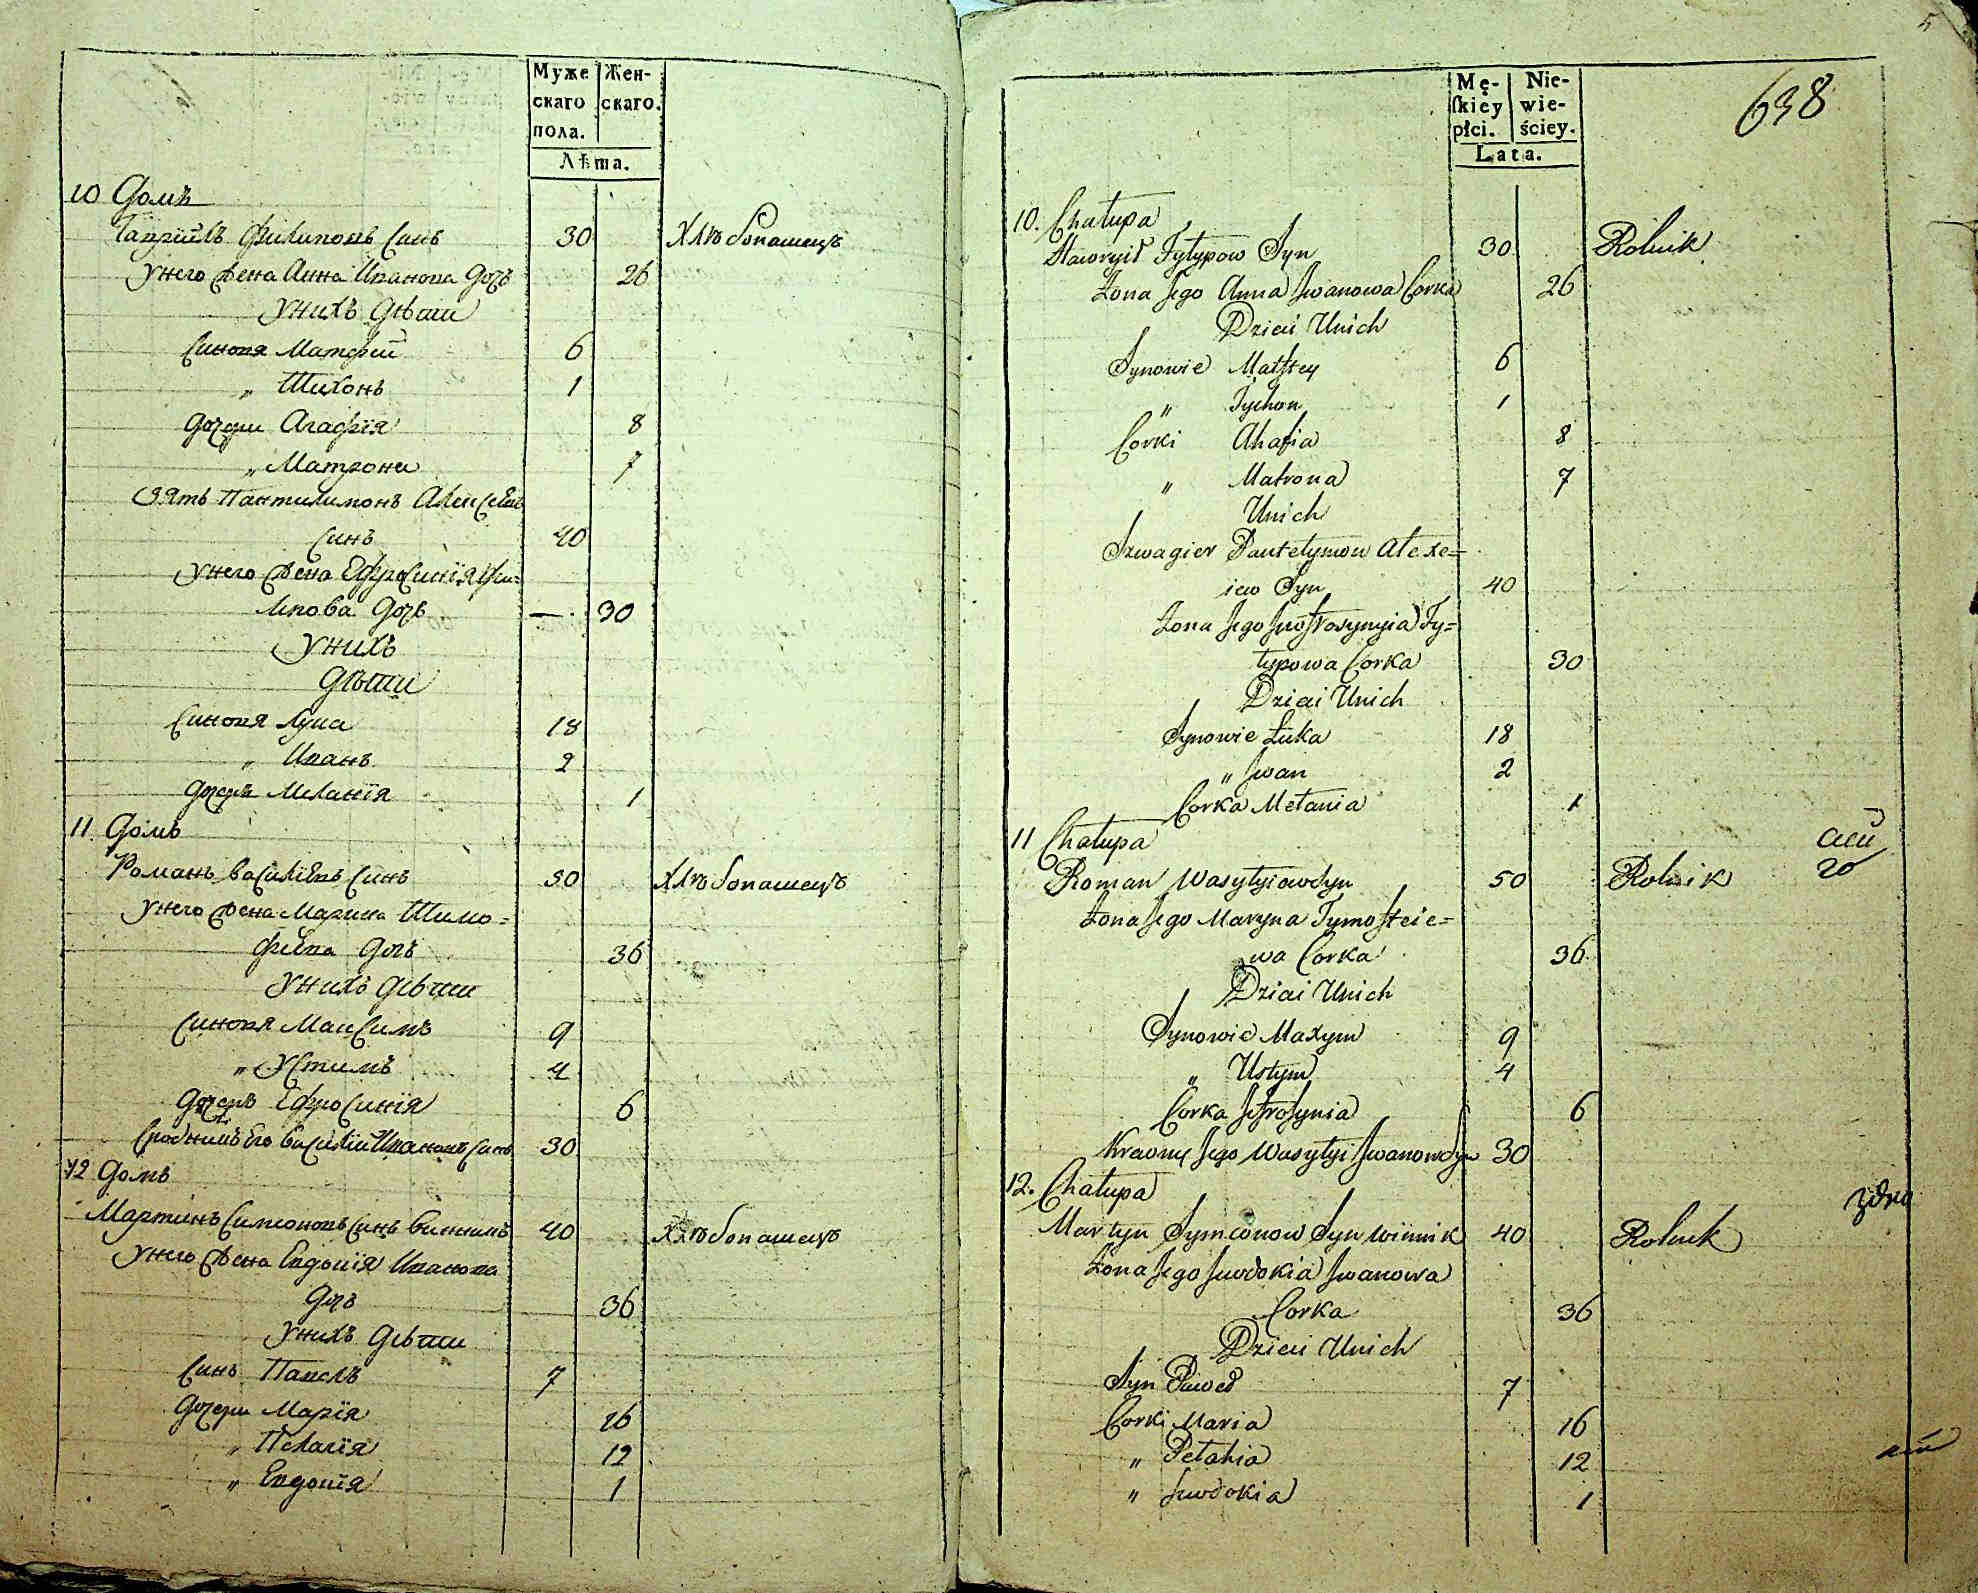 Муже Жен-
скаго скаго.
пола.
Лѣта.
10 Домъ
Гавріилъ Филиповъ Синъ 30 Хлѣбопашецъ
Унего Жена Анна Иванова Дочъ 26
Унихъ Дѣти
Синовя Матфей 6
„ Тихонъ 1
Дочери Агафія 8
„ Матрона 7
Зять Пантилимонъ Алексѣевъ
Синъ 40
Унего Жена Ефросинія Фи=
липова Дочъ — 30
Унихъ
Дѣти
Синовя Лука 18
„ Иванъ 2
Дочеръ Меланія 1
11 Домъ
Романъ Василіевъ Синъ 50 Хлѣбопашецъ
Унего Жена Марина Тимо=
фиева Дочъ 36
Унихъ Дѣти
Синовя Максимъ 9
„ Устимъ 4
Дочеръ Ефросинія 6
Его Василій Ивановъ Синъ 30
12 Домъ
Мартинъ Симеоновъ Синъ Винникъ 40 Хлѣбопашецъ
Унего Жена Евдокія Иванова
Дочъ 36
Унихъ Дѣти
Синъ Павелъ 7
Дочери Марія 16
„ Пелагія 12
„ Евдокія 1
5
638
Mę- Nie-
ſkiey wie-
płci. ściey.
Lata.
10. Chałupa
Hawryił Fyłypow Syn 30 Rolnik
Żona Jego Anna Jwanowa Corka 26
Dzieci Unich
Synowie Matftey 6
„ Tychon 1
Corki Ahafia 8
„ Matrona 7
Unich
Szwagier Pantełymon Ałexe=
iew Syn 40
Żona Jego Jewfrosynyia Fy=
łypowa Corka 30
Dzieci Unich
Synowie Łuka 18
„ Jwan 2
Corka Mełania 1
11 Chałupa
Roman Wasylyiew Syn 50 Rolnik
Żona Jego Maryna Tymofteie=
wa Corka 36
Dzieci Unich
Synowie Maxym 9
„ Ustym 4
Corka Jefrosynia 6
Krewny Jego Wasylyi Jwanow Syn 30
12. Chałupa
Martyn Symeonow Syn Winnik 40 Rolnik
Żona Jego Jewdokia Jwanowa
Corka 36
Dzieci Unich
Syn Paweł 7
Corki Maria 16
„ Pełahia 12
„ Jewdokia 1